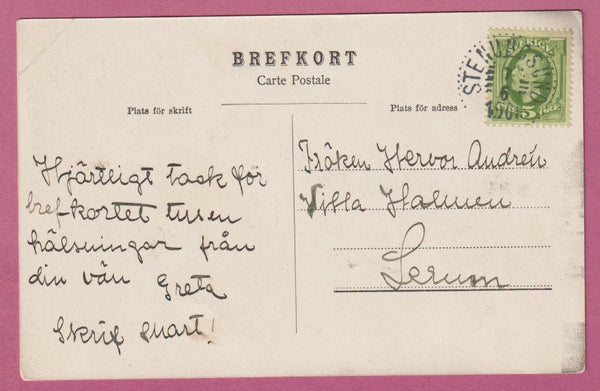 BREFKORT
Carte Postale
Plats för skrift
Plats för adress
SVERIGE
5
STENUNGSUND
Hjärtligt tack för
brefkortet tusen
hälsningar från
din vän Greta
Skrif snart!
Fröken Hervor Andreń
Villa Halmen
Lerum